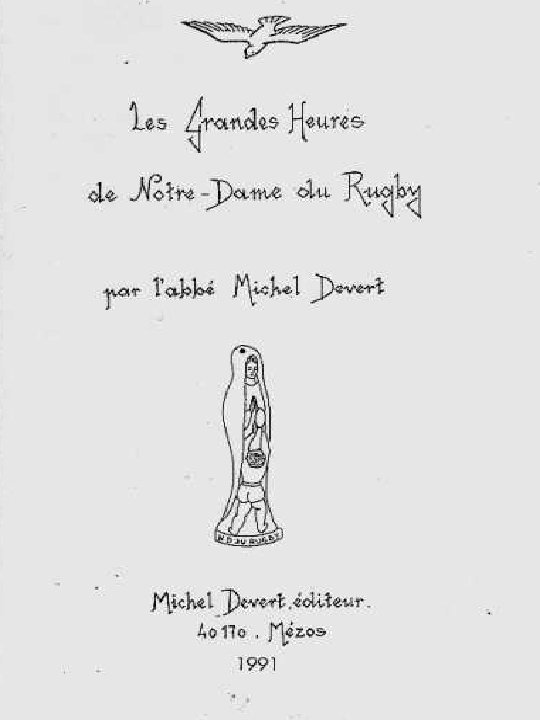 Les Grandes Heures
de Notre-Dame du Rugby
par l'abbé Michel Devert
N D DU RUGBY
Michel Devert, éditeur.
40170. Mézos
1991